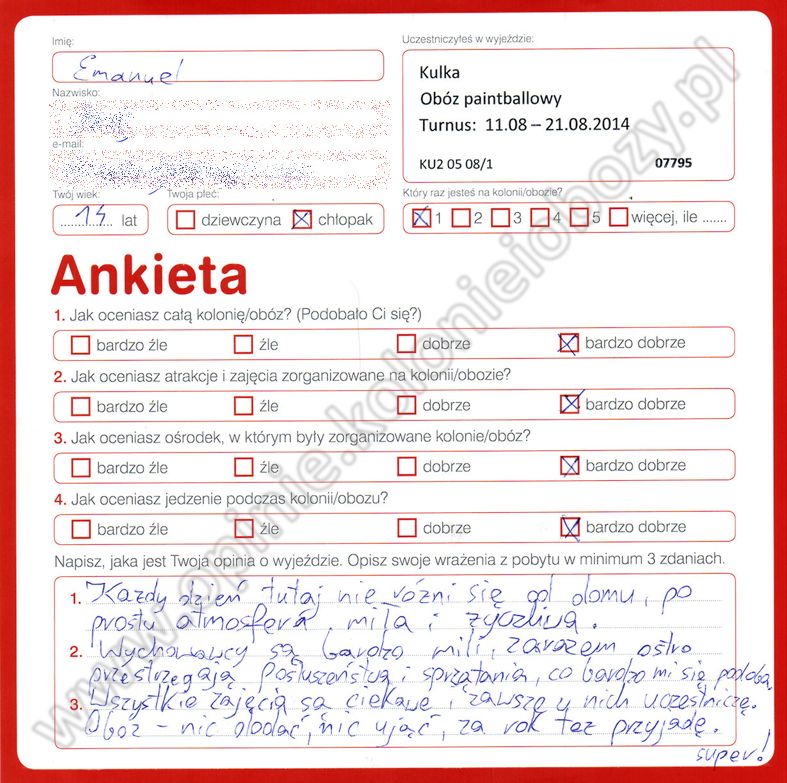 Imię:
Emanuel
Nazwisko:
e-mail:
Twój wiek:
14 lat
Twoja płeć:
dziewczyna chłopak
Uczestniczyłeś w wyjeździe:
Kulka
Obóz paintballowy
Turnus: 11.08 – 21.08.2014
KU2 05 08/1 07795
Który raz jesteś na kolonii/obozie?
1 2 3 4 5 więcej, ile .......
Ankieta
1. Jak oceniasz całą kolonię/obóz? (Podobało Ci się?)
bardzo źle źle dobrze bardzo dobrze
2. Jak oceniasz atrakcje i zajęcia zorganizowane na kolonii/obozie?
bardzo źle źle dobrze bardzo dobrze
3. Jak oceniasz ośrodek, w którym były zorganizowane kolonie/obóz?
bardzo źle źle dobrze bardzo dobrze
4. Jak oceniasz jedzenie podczas kolonii/obozu?
bardzo źle źle dobrze bardzo dobrze
Napisz, jaka jest Twoja opinia o wyjeździe. Opisz swoje wrażenia z pobytu w minimum 3 zdaniach.
1. Każdy dzień tutaj nie różni się od domu, po
prostu atmosfera miła i życzliwa.
2. Wychowawcy są bardzo mili, zarazem ostro
przestrzegają posłuszeństwa i sprzątania, co bardzo mi się podoba
3. Wszystkie zajęcia są ciekawe i zawsze w nich uczestniczę.
Obóz - nic dodać, nic ująć, za rok też przyjadę.
super!
www.opinie.kolonieiobozy.pl